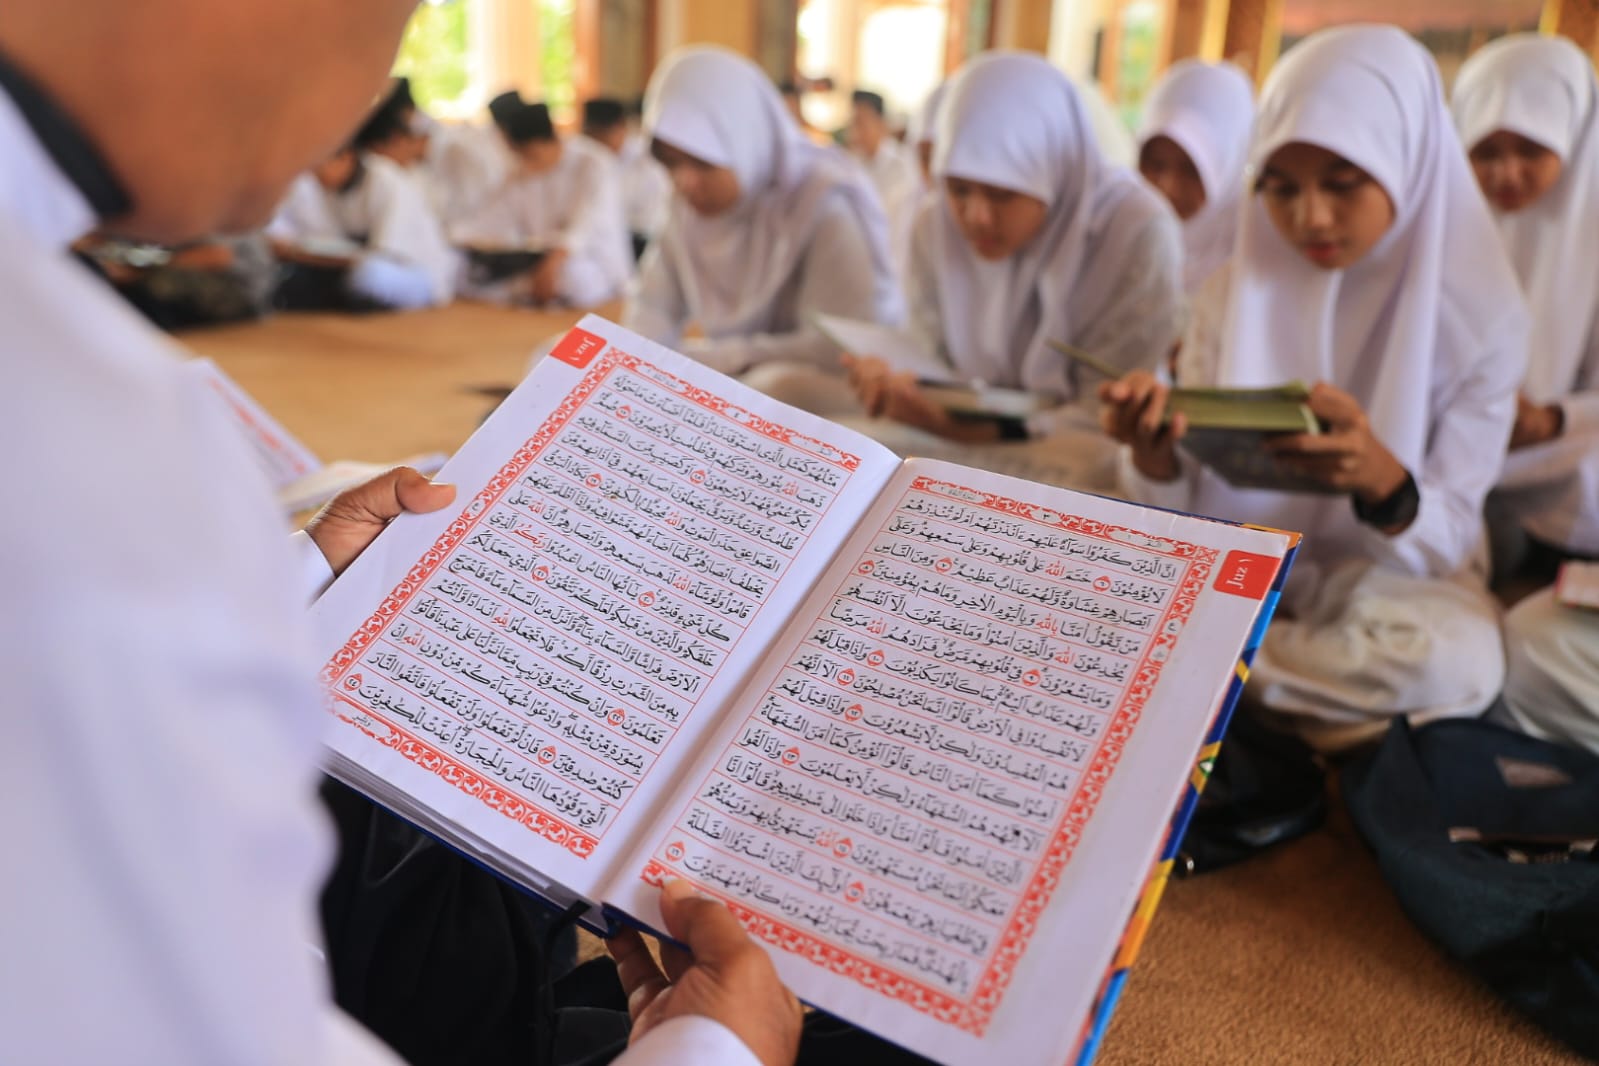 Juz ١
٣
اِنَّ الَّذِيْنَ كَفَرُوْا سَوَآءٌ عَلَيْهِمْ ءَاَنْذَرْتَهُمْ اَمْ لَمْ تُنْذِرْهُمْ
لَا يُؤْمِنُوْنَ ٦ خَتَمَ اللّٰهُ عَلٰى قُلُوْبِهِمْ وَعَلٰى سَمْعِهِمْ وَعَلٰٓى
اَبْصَارِهِمْ غِشَاوَةٌ وَّلَهُمْ عَذَابٌ عَظِيْمٌ ٧ وَمِنَ النَّاسِ
مَنْ يَّقُوْلُ اٰمَنَّا بِاللّٰهِ وَبِالْيَوْمِ الْاٰخِرِ وَمَا هُمْ بِمُؤْمِنِيْنَ ٨
يُخٰدِعُوْنَ اللّٰهَ وَالَّذِيْنَ اٰمَنُوْا وَمَا يَخْدَعُوْنَ اِلَّآ اَنْفُسَهُمْ
وَمَا يَشْعُرُوْنَ ٩ فِيْ قُلُوْبِهِمْ مَّرَضٌ فَزَادَهُمُ اللّٰهُ مَرَضًا
وَلَهُمْ عَذَابٌ اَلِيْمٌ بِمَا كَانُوْا يَكْذِبُوْنَ ١٠ وَاِذَا قِيْلَ لَهُمْ
لَا تُفْسِدُوْا فِى الْاَرْضِ قَالُوْٓا اِنَّمَا نَحْنُ مُصْلِحُوْنَ ١١ اَلَآ اِنَّهُمْ
هُمُ الْمُفْسِدُوْنَ وَلٰكِنْ لَّا يَشْعُرُوْنَ ١٢ وَاِذَا قِيْلَ لَهُمْ
اٰمِنُوْا كَمَآ اٰمَنَ النَّاسُ قَالُوْٓا اَنُؤْمِنُ كَمَآ اٰمَنَ السُّفَهَآءُ
اَلَآ اِنَّهُمْ هُمُ السُّفَهَآءُ وَلٰكِنْ لَّا يَعْلَمُوْنَ ١٣ وَاِذَا لَقُوا
الَّذِيْنَ اٰمَنُوْا قَالُوْٓا اٰمَنَّا وَاِذَا خَلَوْا اِلٰى شَيٰطِيْنِهِمْ قَالُوْٓا اِنَّا
مَعَكُمْ اِنَّمَا نَحْنُ مُسْتَهْزِءُوْنَ ١٤ اَللّٰهُ يَسْتَهْزِئُ بِهِمْ وَيَمُدُّهُمْ
فِيْ طُغْيَانِهِمْ يَعْمَهُوْنَ ١٥ اُولٰٓئِكَ الَّذِيْنَ اشْتَرَوُا الضَّلٰلَةَ
بِالْهُدٰى فَمَا رَبِحَتْ تِّجَارَتُهُمْ وَمَا كَانُوْا مُهْتَدِيْنَ ١٦
Juz ١
٤
مَثَلُهُمْ كَمَثَلِ الَّذِى اسْتَوْقَدَ نَارًا فَلَمَّآ اَضَآءَتْ مَا حَوْلَهٗ
ذَهَبَ اللّٰهُ بِنُوْرِهِمْ وَتَرَكَهُمْ فِيْ ظُلُمٰتٍ لَّا يُبْصِرُوْنَ ١٧ صُمٌّ
بُكْمٌ عُمْيٌ فَهُمْ لَا يَرْجِعُوْنَ ١٨ اَوْ كَصَيِّبٍ مِّنَ السَّمَآءِ فِيْهِ
ظُلُمٰتٌ وَّرَعْدٌ وَّبَرْقٌ يَجْعَلُوْنَ اَصَابِعَهُمْ فِيْٓ اٰذَانِهِمْ مِّنَ
الصَّوَاعِقِ حَذَرَ الْمَوْتِ وَاللّٰهُ مُحِيْطٌ بِالْكٰفِرِيْنَ ١٩ يَكَادُ الْبَرْقُ
يَخْطَفُ اَبْصَارَهُمْ كُلَّمَآ اَضَآءَ لَهُمْ مَّشَوْا فِيْهِ وَاِذَآ اَظْلَمَ عَلَيْهِمْ
قَامُوْا وَلَوْ شَآءَ اللّٰهُ لَذَهَبَ بِسَمْعِهِمْ وَاَبْصَارِهِمْ اِنَّ اللّٰهَ عَلٰى
كُلِّ شَيْءٍ قَدِيْرٌ ٢٠ يٰٓاَيُّهَا النَّاسُ اعْبُدُوْا رَبَّكُمُ الَّذِيْ
خَلَقَكُمْ وَالَّذِيْنَ مِنْ قَبْلِكُمْ لَعَلَّكُمْ تَتَّقُوْنَ ٢١ الَّذِيْ جَعَلَ لَكُمُ
الْاَرْضَ فِرَاشًا وَّالسَّمَآءَ بِنَآءً وَّاَنْزَلَ مِنَ السَّمَآءِ مَآءً فَاَخْرَجَ
بِهٖ مِنَ الثَّمَرٰتِ رِزْقًا لَّكُمْ فَلَا تَجْعَلُوْا لِلّٰهِ اَنْدَادًا وَّاَنْتُمْ
تَعْلَمُوْنَ ٢٢ وَاِنْ كُنْتُمْ فِيْ رَيْبٍ مِّمَّا نَزَّلْنَا عَلٰى عَبْدِنَا فَأْتُوْا
بِسُوْرَةٍ مِّنْ مِّثْلِهٖ وَادْعُوْا شُهَدَآءَكُمْ مِّنْ دُوْنِ اللّٰهِ اِنْ
كُنْتُمْ صٰدِقِيْنَ ٢٣ فَاِنْ لَّمْ تَفْعَلُوْا وَلَنْ تَفْعَلُوْا فَاتَّقُوا النَّارَ
الَّتِيْ وَقُوْدُهَا النَّاسُ وَالْحِجَارَةُ اُعِدَّتْ لِلْكٰفِرِيْنَ ٢٤
وَبَشِّرِ